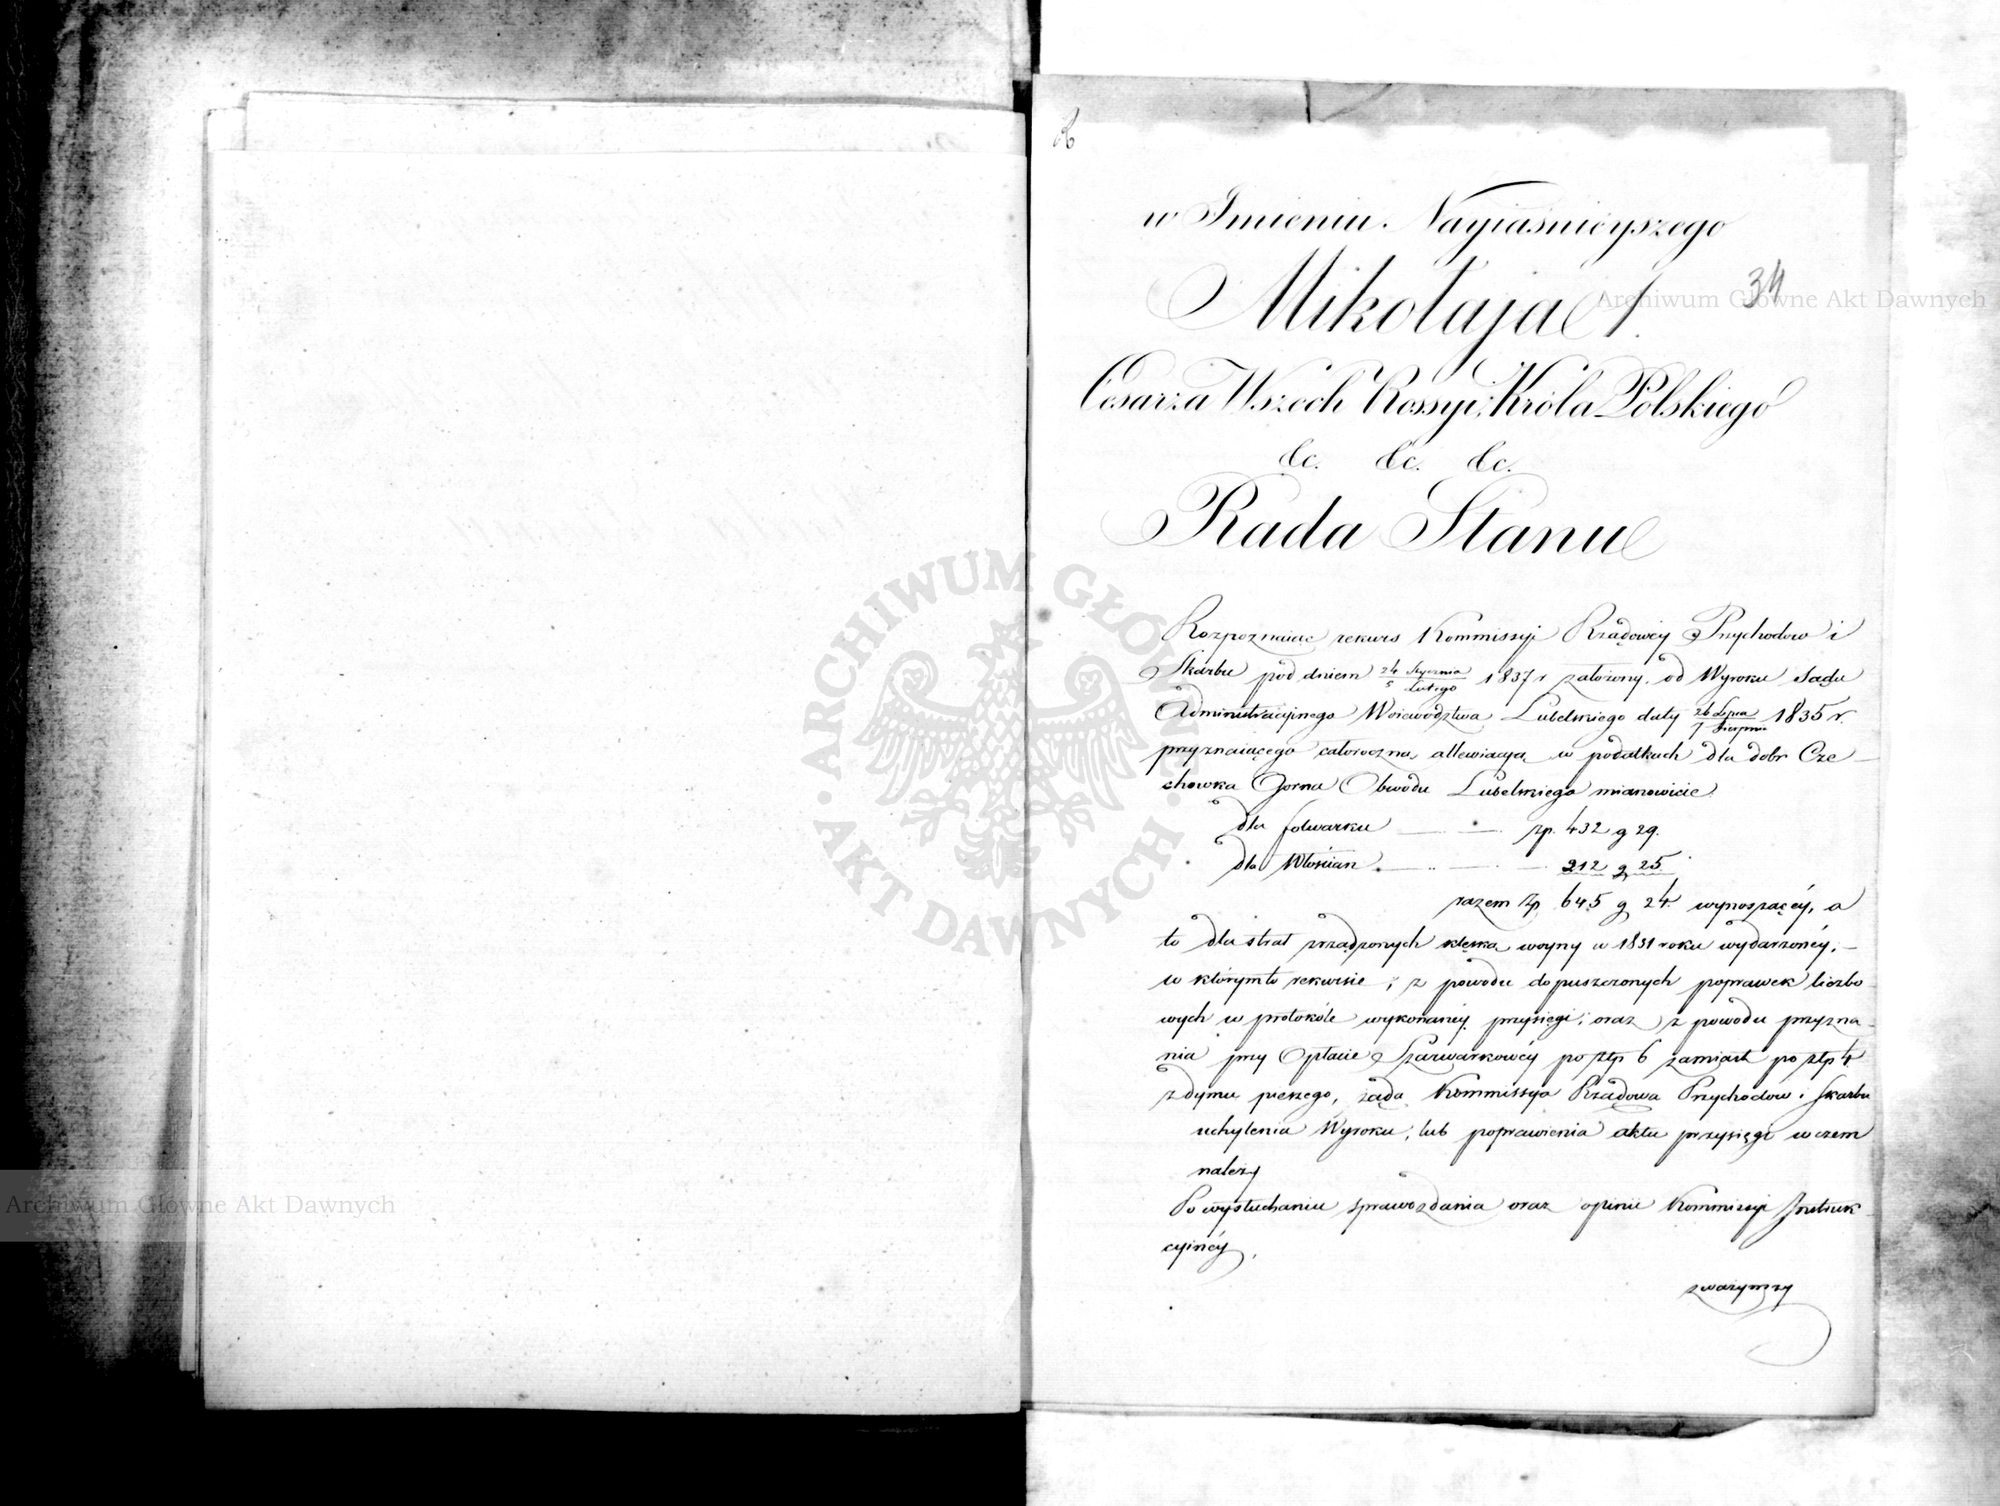 R
34
w Imieniu Nayiaśnieyszego
Mikołaja I.
Cesarza Wszech Rossyi, Króla Polskiego
&c. &c. &c.
Rada Stanu
Rozpoznaiąc rekurs Kommissyi Rządowéy Przychodow i
Skarbu pod dniem 24 Stycznia / 5 Lutego 1837 r założony, od Wyroku Sądu
Administracyinego Woiewodztwa Lubelskiego daty 26 Lipca / 7 Sierpnia 1835 r.
przyznaiącego całoroczną allewiacyą w podatkach dla dobr Cze
chowka Gorna Obwodu Lubelskiego mianowicie
dla folwarku — zp. 432 g 29.
dla Włoscian — 212 g 25
razem Zp. 645 g 24. wynoszącéy, a
to dla strat zrządzonych klęską woyny w 1831 roku wydarzonéy, —
w którym to rekursie, z powodu dopuszczonych poprawek liczbo
wych w protokóle wykonanéy przysięgi, oraz z powodu przyzna
nia przy Opłacie Szarwarkowéy po złp 6 zamiast po złp 4
z dymu pieszego, żąda Kommissya Rządowa Przychodów i Skarbu
uchylenia Wyroku, lub poprawienia aktu przysięgi w czem
należy
Po wysłuchaniu sprawozdania oraz opinii Kommissyi Instruk
cyinéy,
zważywszy
Archiwum Główne Akt Dawnych
Archiwum Główne Akt Dawnych
ARCHIWUM GŁÓWNE · AKT DAWNYCH ·